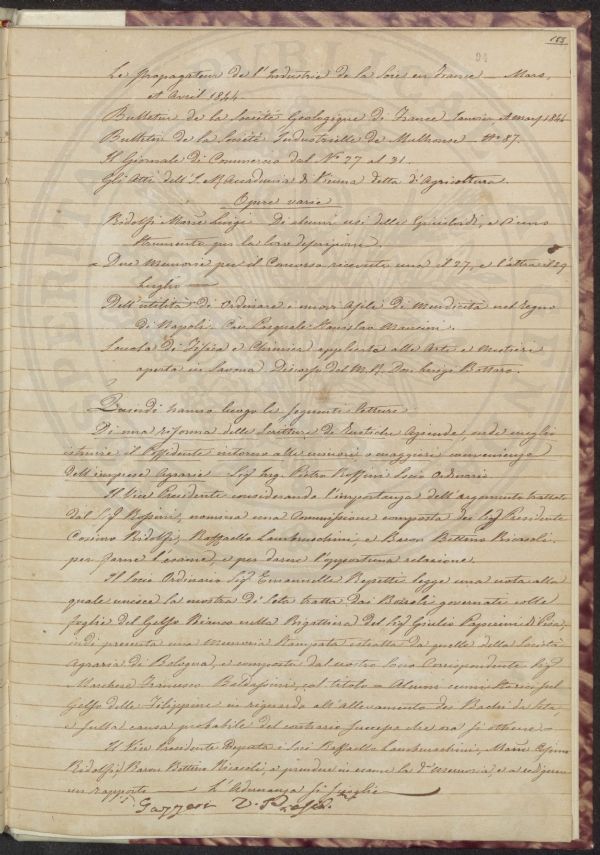 153
Le Propagateur de l'Industrie de la Soie en France — Mars,
et Avril 1844
Bulletin de la Société Geologique di France Janvier a mars 1844
Bulletin de la Société Industrielle de Mulhouse — N.° 87.
Il Giornale di Commercio dal N.° 27 al 31.
Gli Atti dell'I. R. Accademia di Vienna detta d'Agricoltura
Opere varie
Ridolfi March. Luigi Di alcuni usi delle e d'uno
strumento per la loro
Due Memorie per il Concorso ricevute una il 27, e l'altra il 29
Luglio —
Dell'utilità di Ordinare i nuovi Asili di Mendicità nel Regno
di Napoli. Cav. Pasquale Stanislao Mancini.
Scuola di Fisica e Chimica applicata alle Arti e Mestieri
aperta in Savona Discorso del M. R. Don Luigi Bottaro.
Quindi hanno luogo le seguenti letture
Di una riforma delle Scritture di Rustiche Aziende, onde meglio
istruire il Possidente intorno alle minori o maggiori convenienze
dell'imprese Agrarie — Sig. Ing. Pietro Rossini Socio Ordinario
Il Vice Presidente considerando l'importanza dell'argomento trattato
dal Sig. Rossini, nomina una Commissione composta dei Sig. Presidente
Cosimo Ridolfi, Raffaello Lambruschini, e Baron Bettino Ricasoli
per farne l'esame, e per darne l'opportuna relazione.
Il Socio Ordinario Sig. Emanuelle Repetti legge una nota alla
quale unisce la mostra di seta tratta dai Bozzoli governati colle
foglie del Gelso Bianco nella Bigattiera del Sig. Giulio di Pisa,
indi presenta una memoria stampata estratta da quelle della Società
Agraria di Bologna, e composta dal nostro Socio Corrispondente Sig.
Marchese Francesco col titolo — Alcuni cenni storici sul
Gelso delle Filippine in riguardo all'allevamento dei Bachi da Seta,
e sulla causa probabile del contrario successo che ora si ottiene —
Il Vice Presidente Deputa i Soci Raffaello Lambruschini, March. Cosimo
Ridolfi, Baron Bettino Ricasoli, a prendere in esame la d.a memoria, e a redigerne
un rapporto — L'Adunanza si scioglie —
Gazzeri V. Presid.te